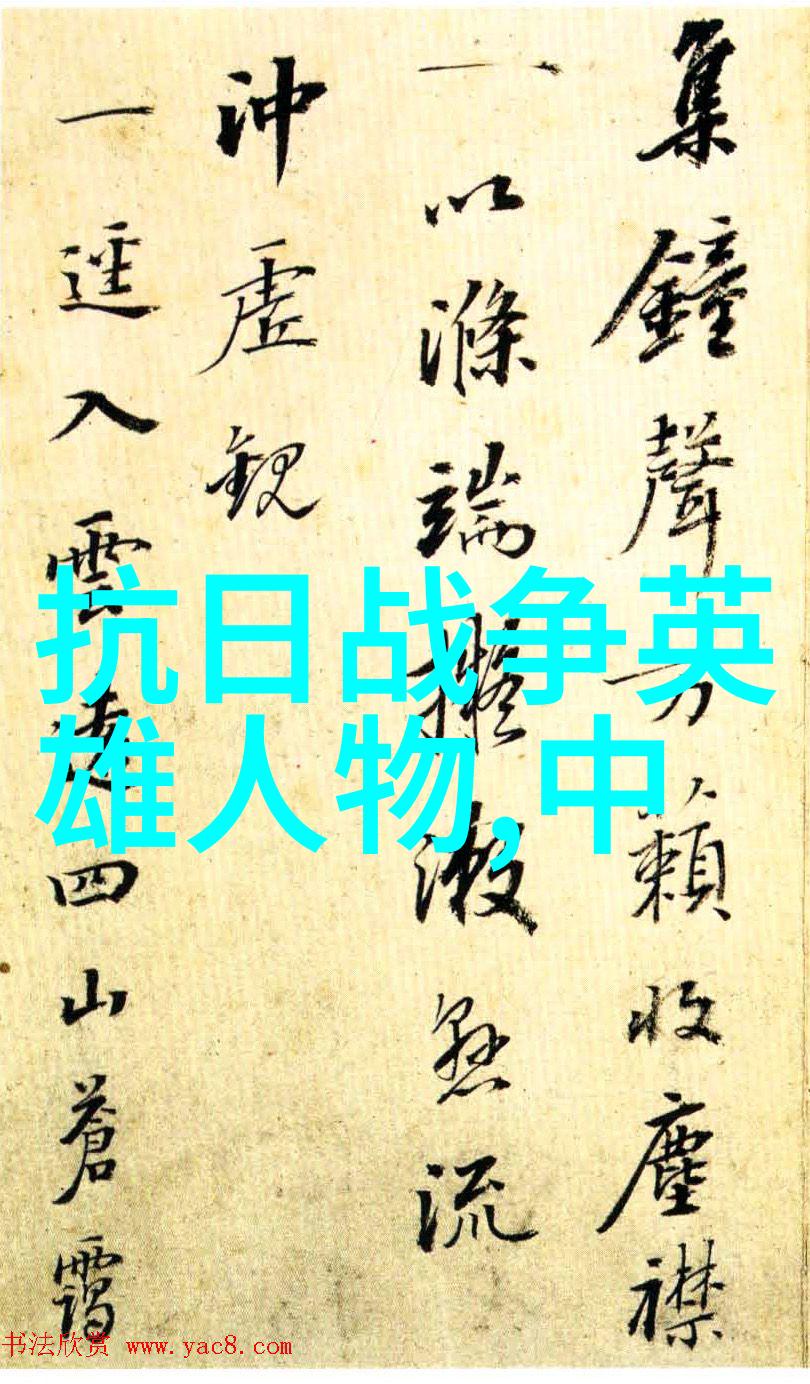 集鐘聲万籟收塵襟
一以滌端擬漱懸流
沖虛觀
一逕入雲四山蒼靄
抗日战争英
雄人物,中
书法欣赏 www.yac8.com